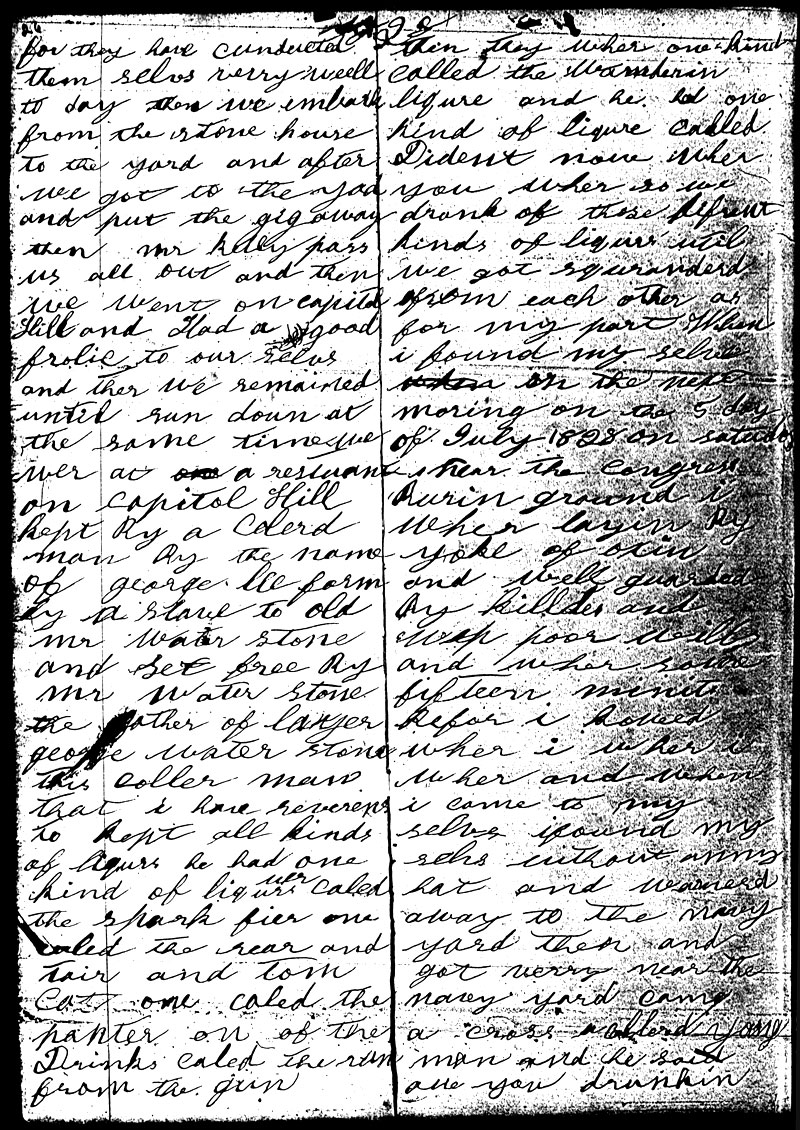 26
for they have cunducted
them selvs verry well
to day then we embark
from the stone house
to the yard and after
we got to the yad
and put the gig away
then mr kelly pass
us all out and then
we went on capitol
Hill and Had a good
frolic to our selvs
and ther we remained
until sun down at
the same time we
wer at a resturant
on capitol Hill
kept By a Colerd
man By the name
of george lee form
ly a slave to old
mr water stone
and set free By
mr water stone
the father of lawyer
george water stone
this coller man
that i have reverens
to kept all kinds
of liqurs he had one
kind of liqurs caled
the spark fier one
caled the rear and
tair and tom
Cat one caled the
panter on of the
Drinks caled the run
from the gun
28
then they wher one kind
called the
liqure and he had one
kind of liqure called
Dident now wher
you wher so we
drank of these difrent
kinds of liqurs util
we got squranderd
from each other as
for my part When
i found my selve
on the next
moring on the 5 day
of July 1828 on satuday
near the congress
Burin ground i
wher layin By
yoke of oxin
and well guarded
By killdes and
poor
and wher some
fifteen minits
Befor i knowed
wher i wher i
wher and when
i come to my
selvs i found my
selvs without anny
hat and warnerd
away to the navy
yard then and
got verry near the
navy yard camp
a cross a collerd yong
man and he said
are you drunkin